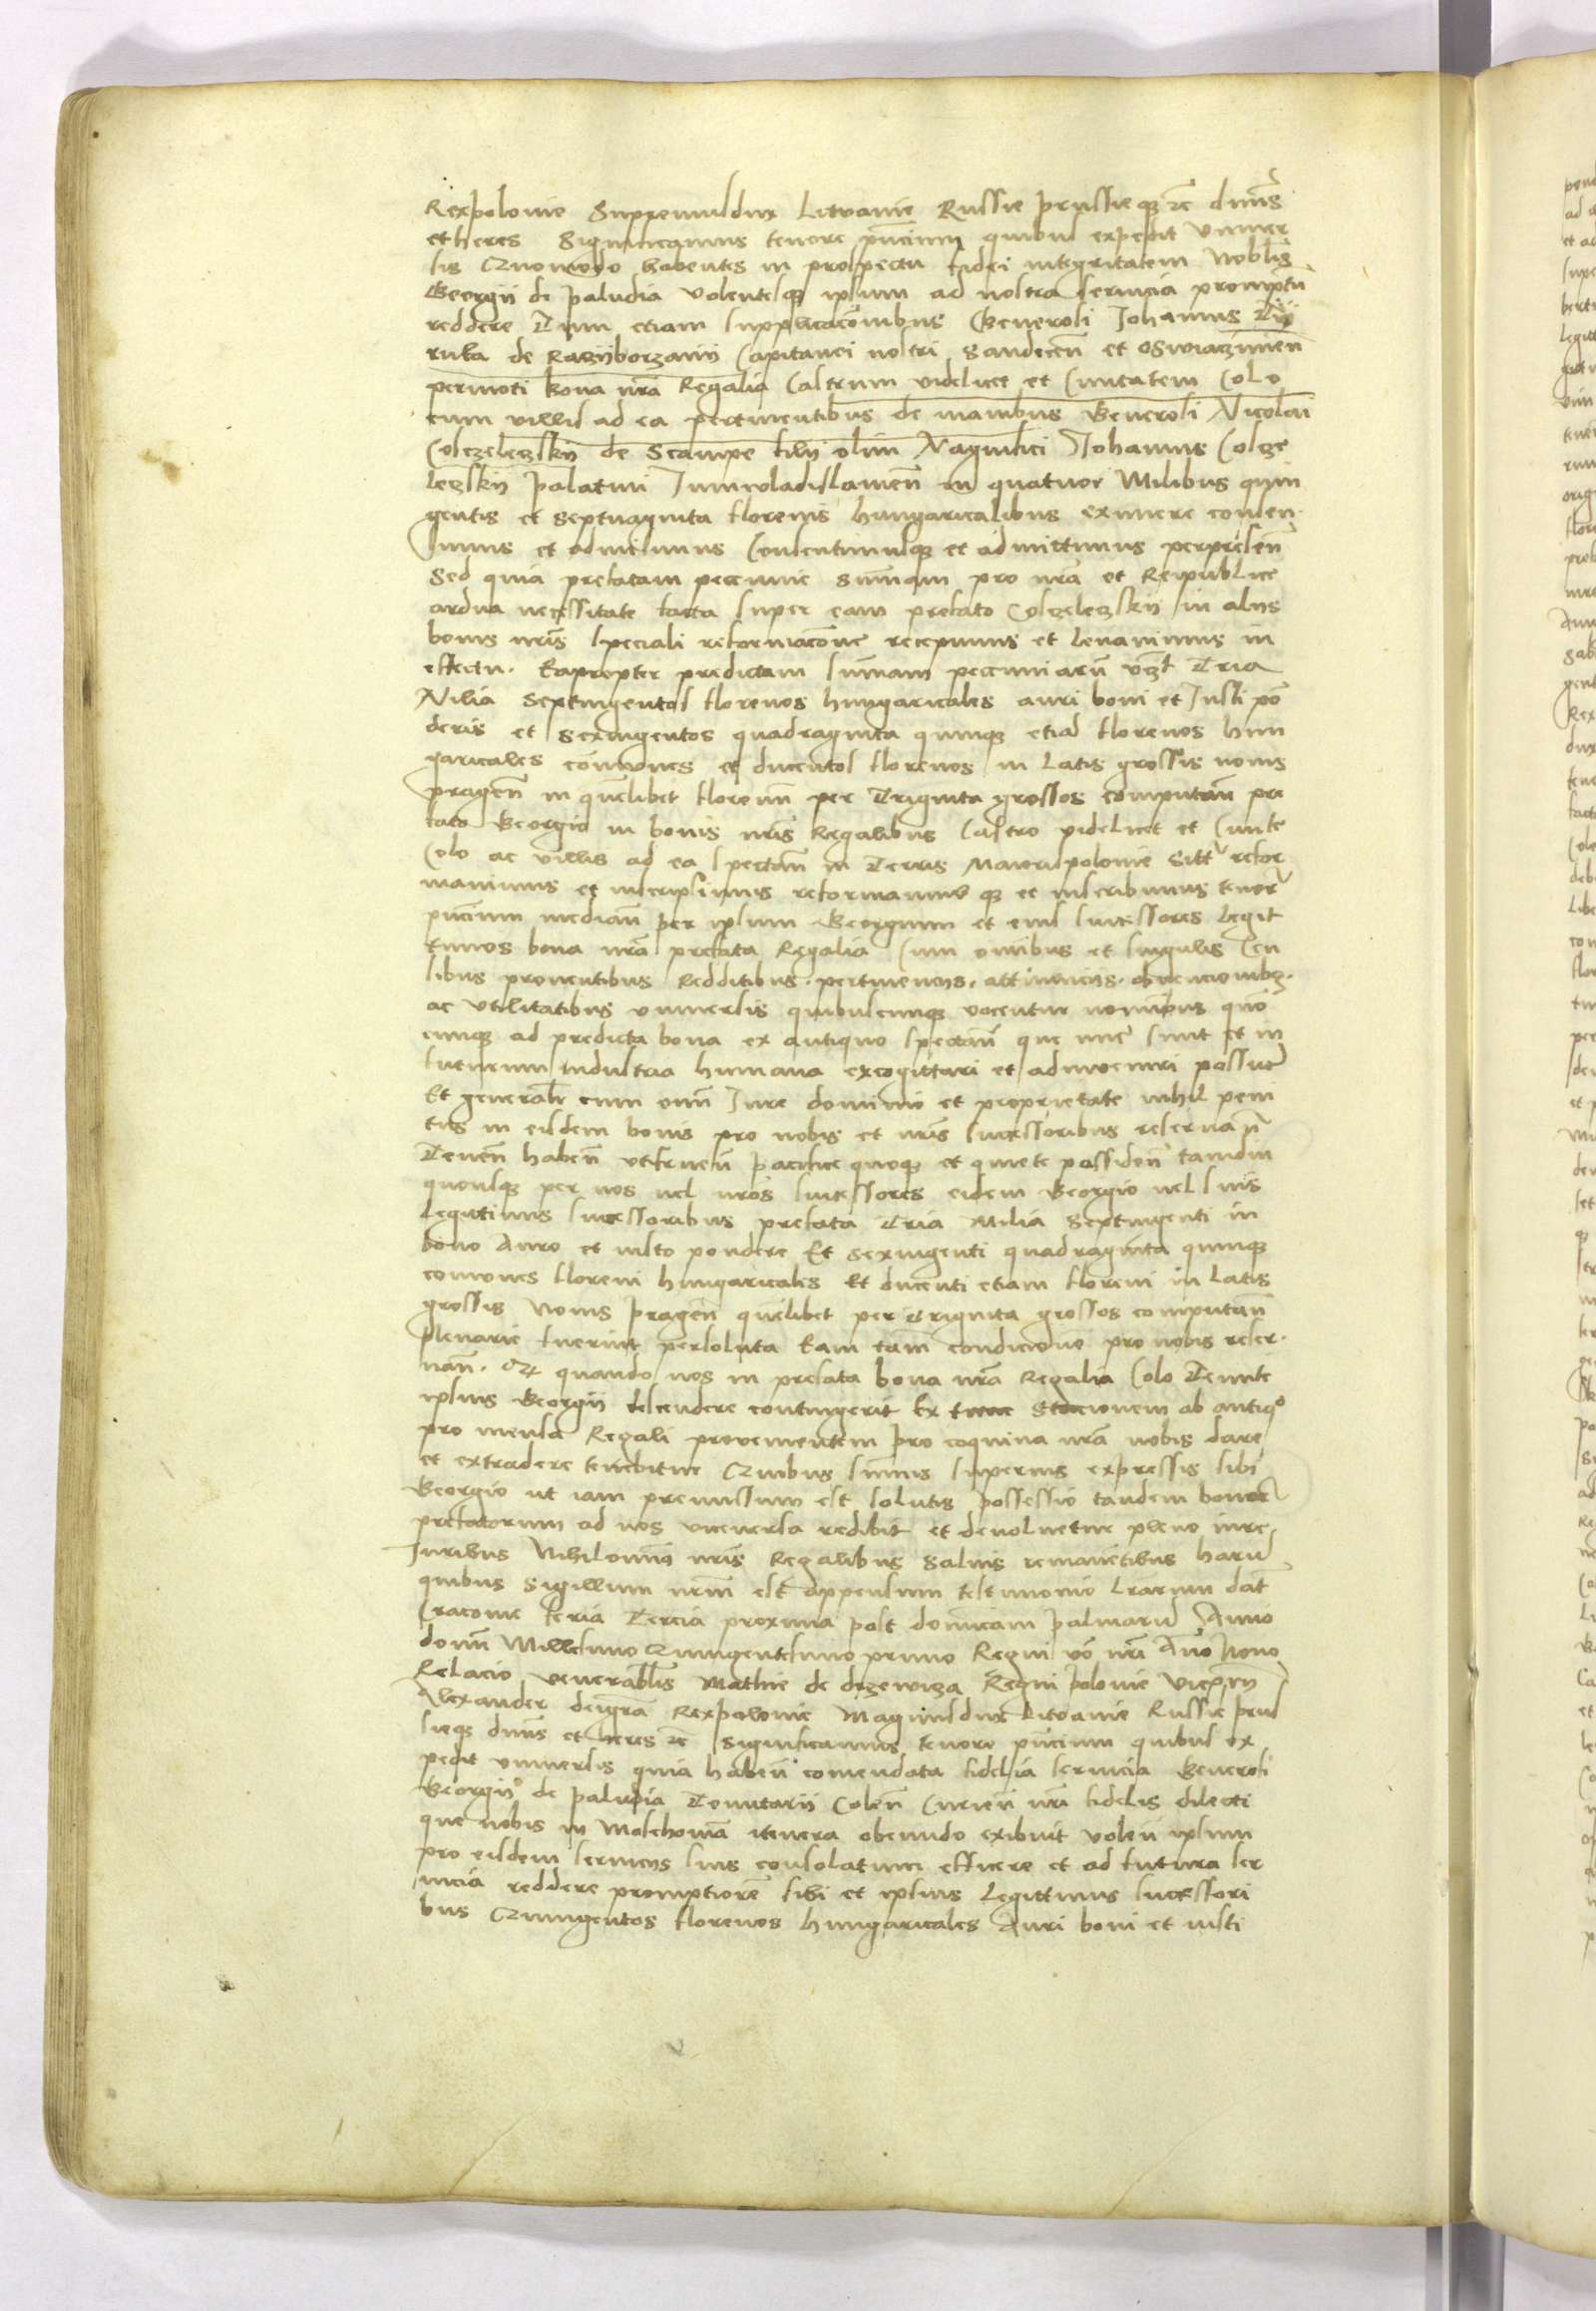 Rexpolonie Supremusdux Litvanie Russie prussieqꝫ ꝛc dnus
et heres Significamus tenore pncium quibus expedit vniuer
sis Quomodo habentes in prospectu fidei integritatem Noblis
Georgii de paludia volentesqꝫ ipsum ad nostra seruicia promptu
reddere Tum etiam supplicacoibus Generosi Johannis Tij
rula de Raszijborzanij Capitanei nostri Sandecen et Oswiaczimen
permoti bona nra Regalia Castrum videlicet et Ciuitatem Colo
cum villis ad ea pertinentibus de manibus Generosi Nicolai
Coszczeleczskij de Scampe filij olim Magnifici Johannis Cosze
leczskij palatini Juniwladislauien in quatuor Milibus quin
gentis et septuaginta florenis hungaricalibus eximere consen
simus et admisimus Consentimusqꝫ et admittimus perpresen
Sed quia prefatam peccunie summam pro nra et Reipublice
ardua necessitate facta super eam prefato Coszczeleczskij in alijs
bonis nris speciali reformacone recepimus et leuauimus in
effectu. Eapropter predictam summam peccuniarum vz Tria
Milia Septingentos florenos hungaricales auri boni et Justi pon
deris et sexingentos quadraginta quinqꝫ etiam florenos hun
garicales comunes et ducentos florenos in latis grossis nouis
pragen in quelibet florenum per Triginta grossos computan pre
fato Georgio in bonis nris Regalibus Castro videlicet et Ciuite
Colo ac villis ad ea spectan in Terris Maioripolonie Sitt refor
mauimus et inscripsimus reformamus qꝫ et inscribimus tenor
pncium median per ipsum Georgium et eius successores legit
timos bona nra prefata Regalia Cum omibus et singulis Cen
sibus prouentibus Redditibus. pertinencijs. attinencijs. obuencionibz.
ac vtilitatibus vniuersis quibuscunqꝫ vocentur nominibus quo
cunqꝫ ad predicta bona ex antiquo spectan que nunc sunt et in
futurum industria humana excogittari et adinueniri possunt
Et generalr cum omni Jure dominio et proprietate nihil peni
tus in eisdem bonis pro nobis et nris successoribus reseruan
Tenen haben vtifruen pacifice quoqꝫ et quiete possiden tamdiu
quousqꝫ per nos uel nros successores eidem Georgio uel suis
legittimis successoribus prefata Tria Milia Septingenti in
bono Auro et iusto pondere Et sexingenti quadraginta quinqꝫ
comunes floreni hungaricales Et ducenti etiam floreni in latis
grossis Nouis pragen quelibet per Triginta grossos computan
plenarie fuerint persoluta Eam tam condicione pro nobis reser
uan. Qz quando nos in prefata bona nra Regalia Colo Tenute
ipsius Georgii descendere contingerit Ex tunc Stacionem ab antiqo
pro mensa Regali prouenientem pro coquina nra nobis dare
et extradere tenebitur Quibus summis superius expressis sibi
Georgio ut iam premissum est solutis possessio tandem bonor
prefatorum ad nos viceuersa redibit et deuoluetur pleno iure
Juribus Nihilominus nris Regalibus Saluis remanentibus harum
quibus Sigillum nrum est appensum testimonio lrarum dat
Cracouie feria Tercia proxima post domicam palmarum Anno
domi Millesimo Quingentesimo primo Regni vo nri Ano Nono
Relacio venerabilis Mathie de drzewicza Regni polonie Vicecan
Alexander deigra Rexpolonie Magnusdux Litvanie Russie prus
sieqꝫ dnus et heres ꝛc Significamus tenore pncium quibus ex
pedit vniuersis quia haben comendata fidelia seruicia Generosi
Georgij de paludia Tenutarij Colen Curien nri fidelis dilecti
que nobis in Moschouia itenera obeundo exibuit volen ipsum
pro eisdem seruicijs suis consolatum efficere et ad futura ser
uicia reddere promptiorem sibi et ipsius legittimis successori
bus Quingentos florenos hungaricales Auri boni et iusti